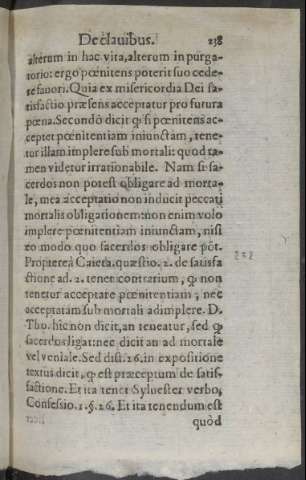 De clauibus. 238
alterum in hac vita, alterum in purga-
torio: ergo pœnitens poterit suo cede-
re fauori. Quia ex misericordia Dei sa-
tisfactio præsens acceptatur pro futura
pœna. Secundò dicit ꝙ si pœnitens ac-
ceptet pœnitentiam iniunctam, tene-
tur illam implere sub mortali: quod ta-
men videtur irrationabile. Nam si sa-
cerdos non potest obligare ad morta-
le, mea acceptatio non inducit peccati
mortalis obligationem: non enim volo
implere pœnitentiam iniunctam, nisi
eo modo quo sacerdos obligare põt.
Propterea Caieta. quæstio. 2. de satisfa
ctione ad. 2. tenet contrarium, ꝙ non
tenetur acceptare pœnitentiam; nec
acceptatam sub mortali adimplere. D.
Tho. hic non dicit, an teneatur, sed ꝙ
sacerdos ligat: nec dicit an ad mortale
vel veniale. Sed dist. 26. in expositione
textus dicit, ꝙ est præceptum de satis-
factione. Et ita tenet Syluester verbo,
Confessio. 1. §. 26. Et ita tenendum est
quòd